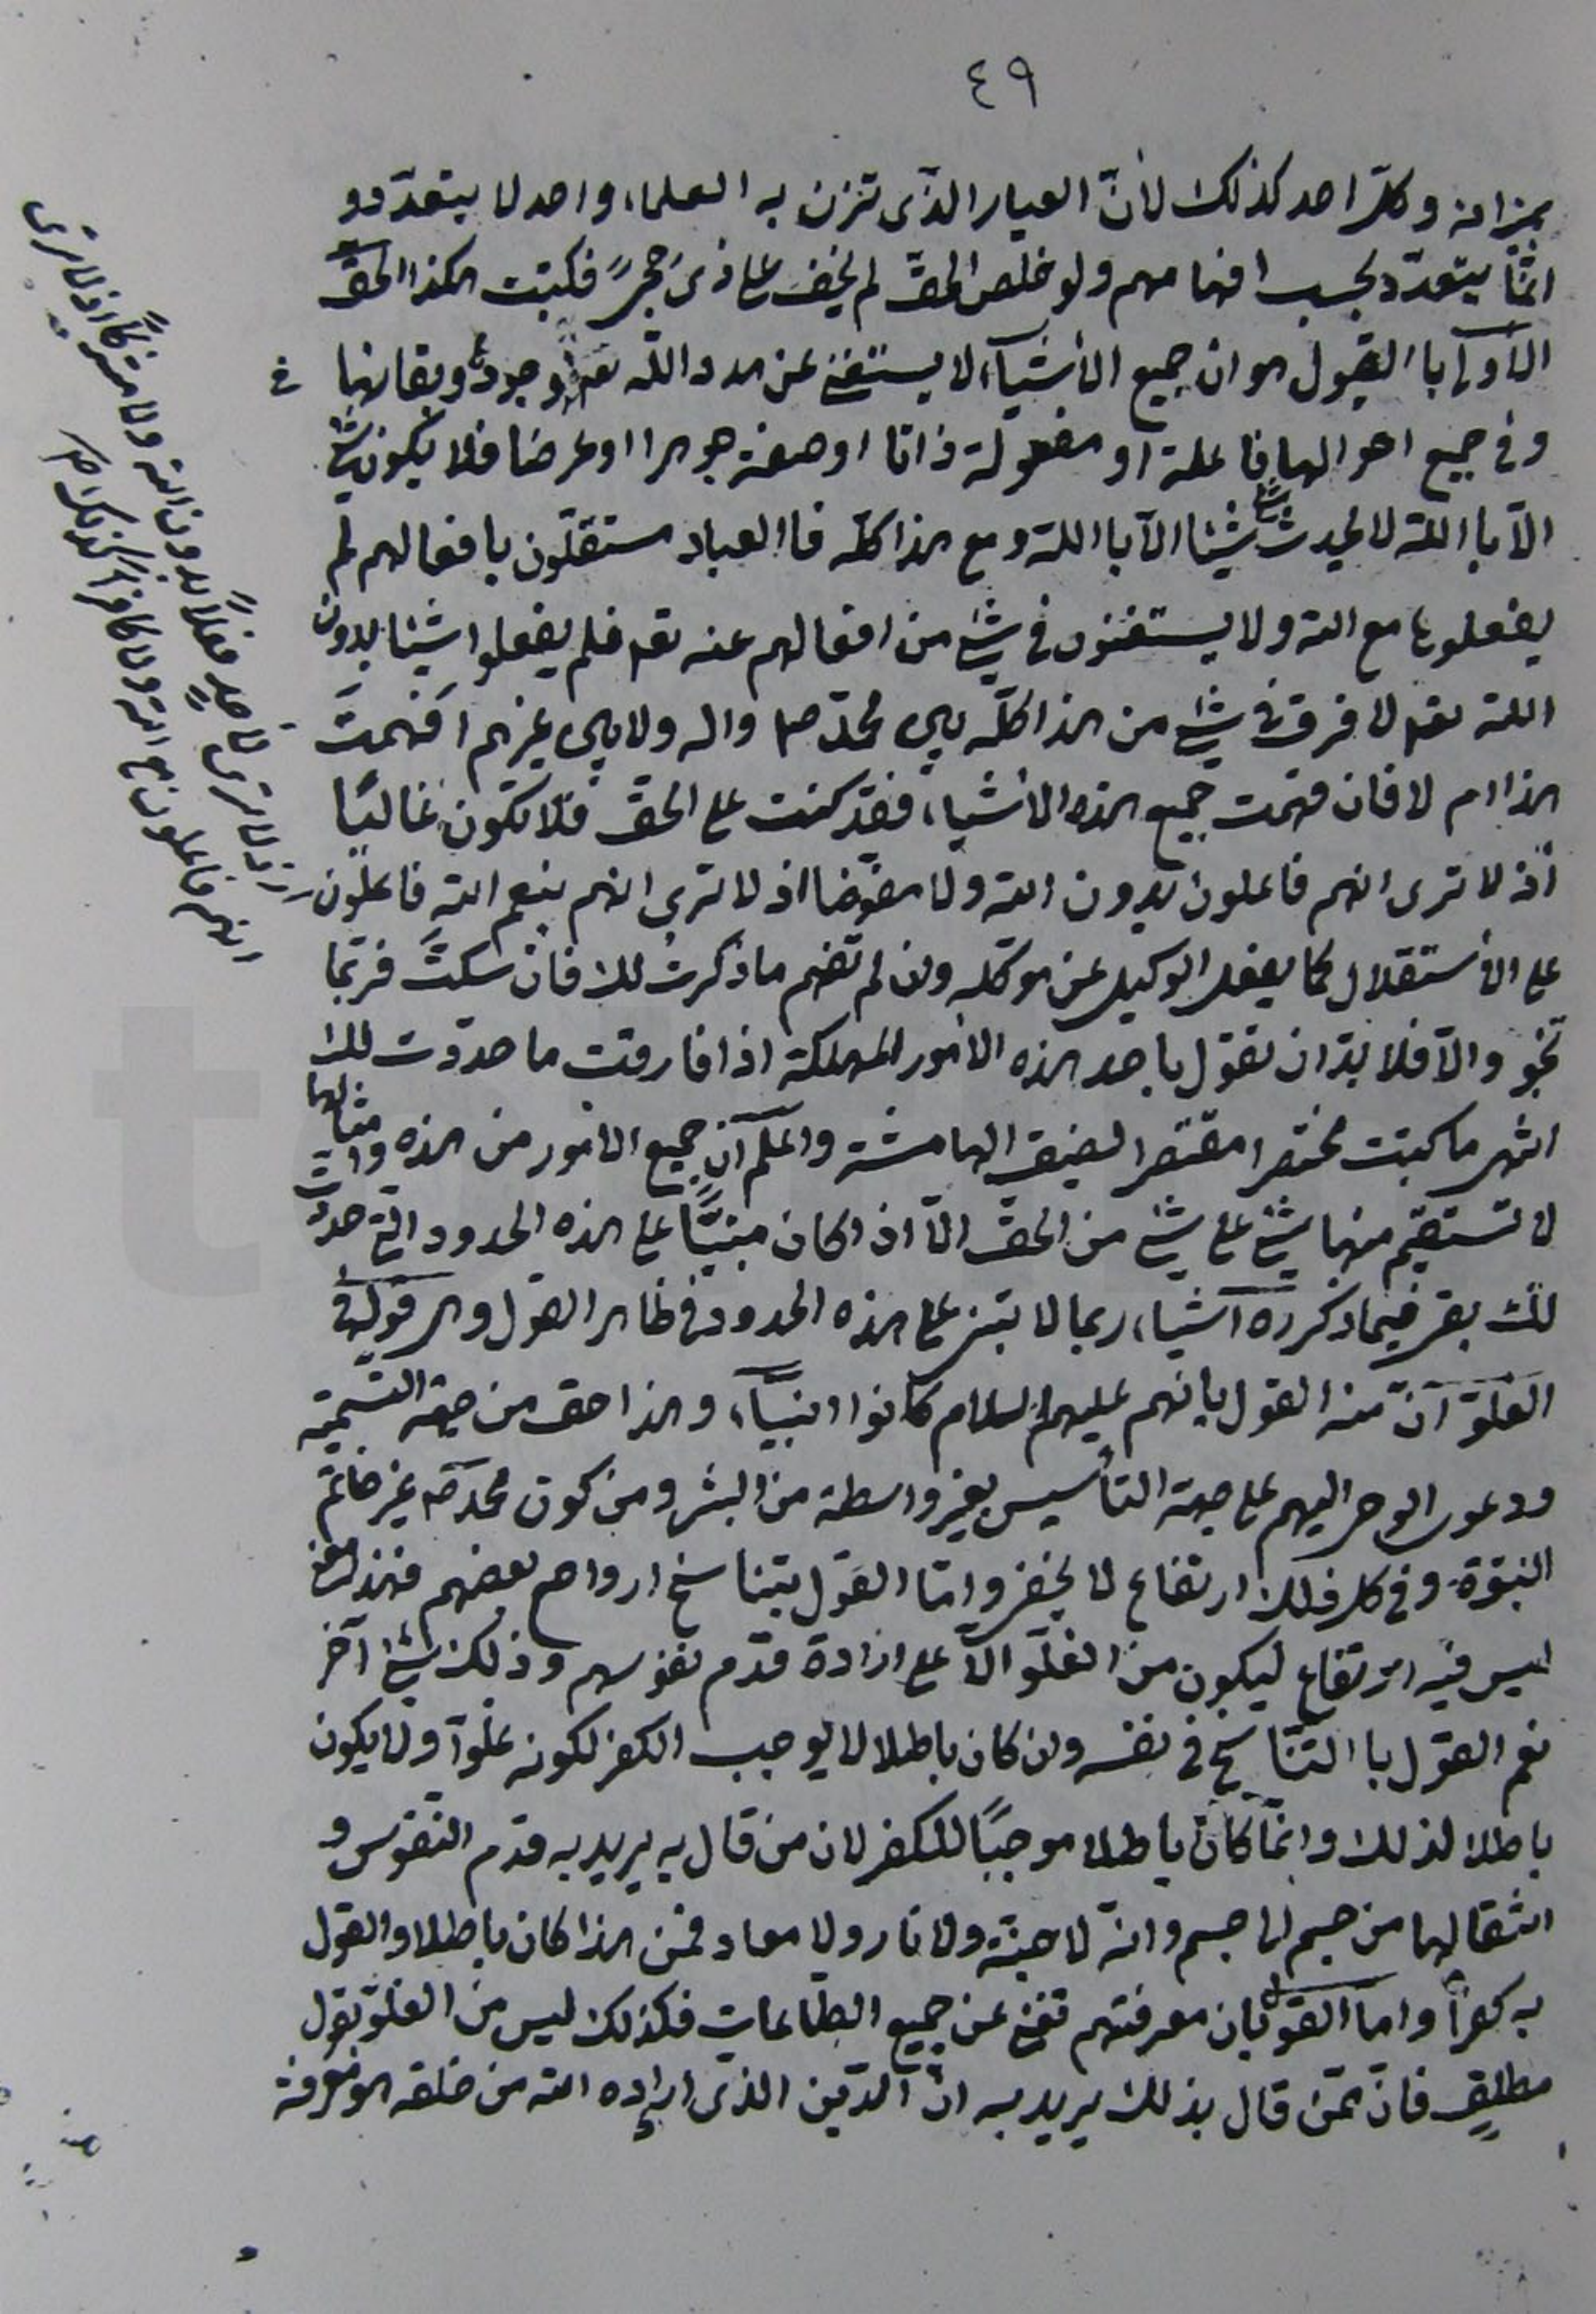 ٤٩
بميزانه وكل احد كذلك لأنّ العيار الذى تزن به العلماء واحد لا يتعدّد و
انّما يتعدّد بحسب افهامهم ولو خلص الحقّ لم يخف على ذى حجىً فكتبت هكذا الحقّ
الأولى بالقبول هو ان جميع الأشياء لا يستغنى عن مدد الله تعالى وجودها وبقائها
وفى جميع احوالها فاعلة او مفعولة ذاتا او صفة جوهرا او عرضا فلا يكون شئ
الّا باالله لا يحدث شئ شيئا الّا باالله ومع هذا كلّه فاالعباد مستقلّون بافعالهم لم
يفعلوها مع الله ولا يستغنون فى شئ من افعالهم عنه تعالى فلم يفعلوا شيئا بدون
الله تعالى لا فرق فى شئ من هذا كلّه بين محمّد ص واله ولا بين غيرهم افهمتَ
هذا ام لا فان فهمت جميع هذه الاشياء فقد كنت على الحقّ فلا تكون غاليًا
اذ لا ترى انهم فاعلون بدون الله ولا مفوّضا اذ لا ترى انهم بنعم الله فاعلون
على الاستقلال كما يفعل الوكيل عن موكّله وان لم تفهم ما ذكرت لك فان سكتَّ فربّما
تنجو والّا فلا بدّ ان تقول باحد هذه الامور المهلكة اذا فارقت ما حدّدت لك
انتهى ما كتبت مختصرا مقتصرا لضيق الهامشة واعلم انّ جميع الامور من هذه وامثالها
لا تستقيم منها شئ على شئ من الحقّ الّا اذا كان مبنيّا على هذه الحدود التى حدّدت
لك بقى فيما ذكره اشياء ربما لا تبنى على هذه الحدود فى ظاهر القول وهى قوله فى
الغلوّ انّ منه القول بانهم عليهم السلام كانوا انبياء وهذا حق من جهة التسمية
ودعوى الوحى اليهم على جهة التأسيس بغير واسطة من البشر ومن كون محمّد ص غير خاتم
النبوّة وفى كل ذلك ارتفاع لا يخفى وامّا القول بتناسخ ارواح بعضهم فهذا
ليس فيه ارتفاع ليكون من الغلّو الّا على ارادة قدم نفوسهم وذلك شئ آخر
نعم القول باالتناسخ فى نفسه وان كان باطلا لا يوجب الكفر لكونه غلّوا ولا يكون
باطلا لذلك وانّما كان باطلا موجبًا للكفر لان من قال به يريد به قدم النفوس و
انتقالها من جسم الى جسم وانّه لا جنّة ولا نار ولا معاد فمن هذا كان باطلا والقول
به كفرا واما القول بان معرفتهم تغنى عن جميع الطاعات فكذلك ليس من الغلّو بقول
مطلق فانّ من قال بذلك يريد به انّ الدّين الذى اراده الله من خلقه هو معرفة